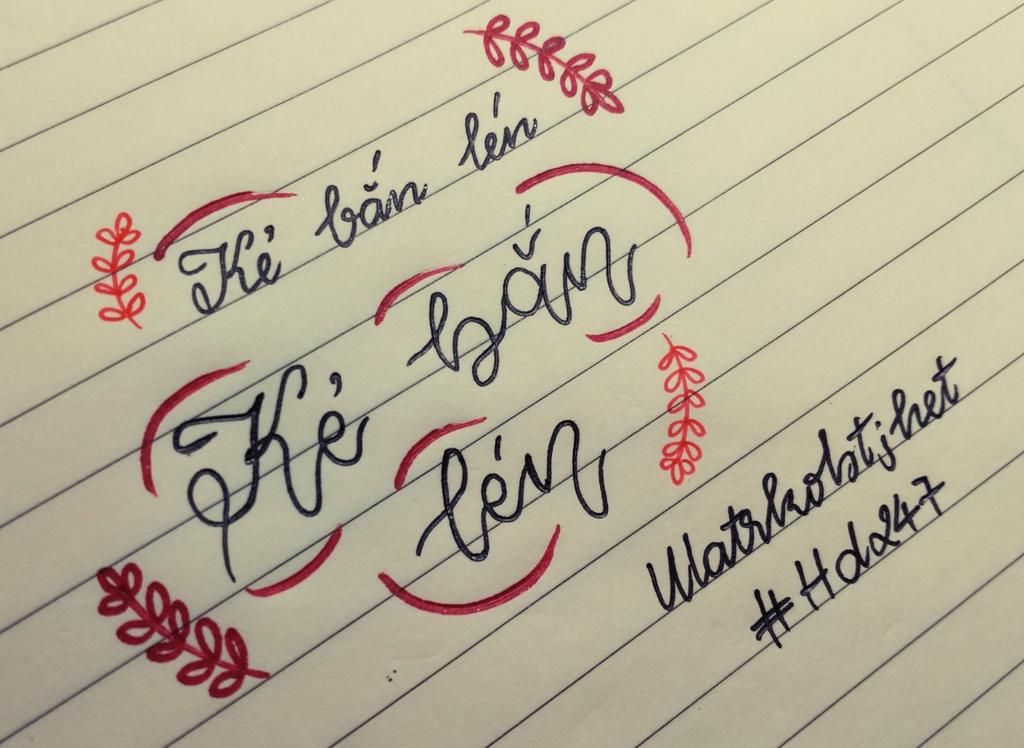 Kẻ bắn lén
Kẻ bắn lén
#Hd247